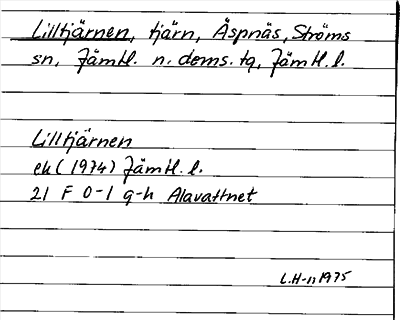 Lilltjärnen, tjärn, Äspnäs, Ströms
sn, Jämtl. n. doms. tg, Jämtl. l.
Lilltjärnen
ek (1974) Jämtl. l.
21 F 0-1 g-h Alavattnet
L.H-n 1975